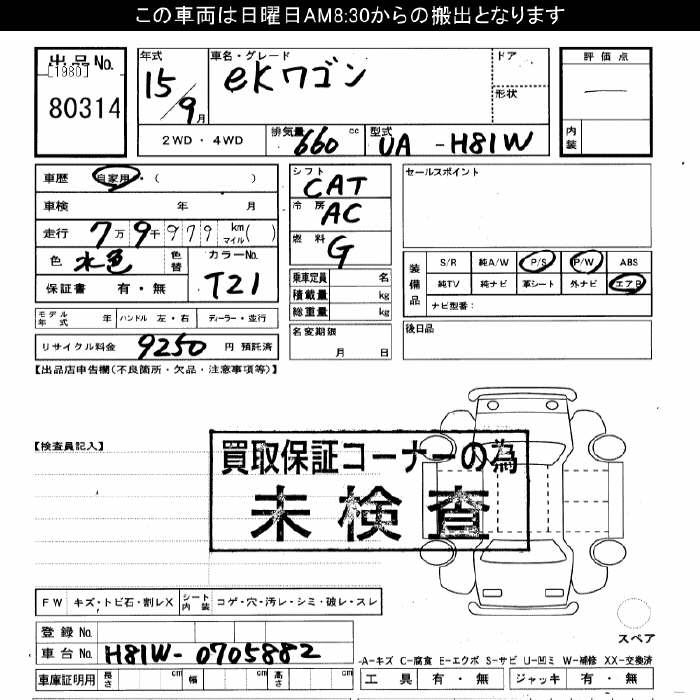 この車両は日曜日AM8:30からの搬出となります
出品No.
[1980]
80314
年式
15/9月
車名・グレード
eKワゴン
ドア
形状
評価点
内装
2WD・4WD
排気量 660 cc
型式 UA -H81W
車歴 自家用・( )
車検 年 月
走行 7万9千979 km マイル( )
色 水色 色替
カラーNo. T21
保証書 有・無
シフト CAT
冷房 AC
燃料 G
乗車定員 名
積載量 kg
総重量 kg
名変期限
月 日
セールスポイント
装備品
S/R 純A/W P/S P/W ABS
純TV 純ナビ 革シート 外ナビ エアB
ナビ型番:
後日品
モデル年式 年 ハンドル 左・右 ディーラー・並行
リサイクル料金 9250 円 預託済
【出品店申告欄(不良箇所・欠品・注意事項等)】
【検査員記入】
買取保証コーナーの為
未検査
FW キズ・トビ石・割レX シート内装 コゲ・穴・汚レ・シミ・破レ・スレ
スペア
登録No.
車台No. H81W-0705882
車庫証明用 長さ cm 幅 cm 高さ cm
-A-キズ C-腐食 E-エクボ S-サビ U-凹ミ W-補修 XX-交換済
工具 有・無 ジャッキ 有・無